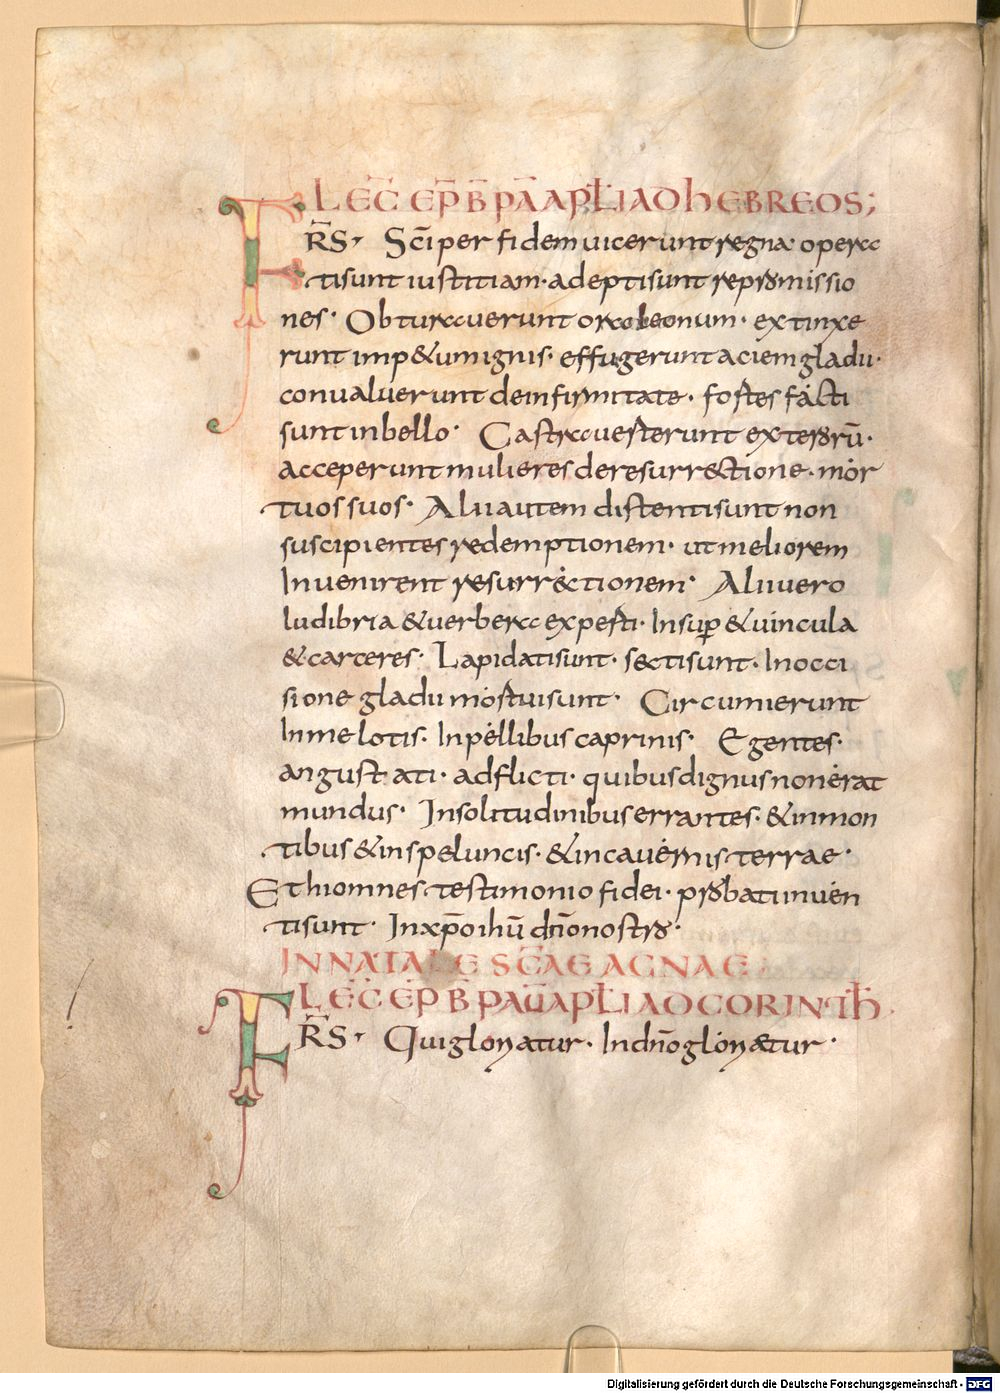 LEC̄ EP̄ B̄ PĀ APL̄I AD HEBREOS;
FR̄S· Sc̄i per fidem uicerunt regna opera
ti sunt iustitiam· adepti sunt repromissio
nes· Obturauerunt ora leonum· extinxe
runt imp&um ignis· effugerunt aciem gladii·
conualuerunt de infirmitate· fortes facti
sunt in bello· Castra uerterunt exterorū·
acceperunt mulieres de resurrectione· mor
tuos suos· Alii autem distenti sunt non
suscipientes redemptionem· ut meliorem
Inuenirent resurrectionem· Alii uero
ludibria & uerbera experti· Insup̄ & uincula
& carceres· Lapidati sunt· secti sunt· In occi
sione gladii mortui sunt· Circumierunt
In melotis· In pellibus caprinis· Egentes·
angustiati· adflicti· quibus dignus non erat
mundus· In solitudinibus errantes· & in mon
tibus & in speluncis· & in cauernis terrae·
Et hi omnes testimonio fidei· probati inuen
ti sunt· In xp̄o ihū dn̄o nostro·
IN NATALE SC̄AE AGNAE;
LEC̄ EP̄ B̄ PAŪ APL̄I AD CORINTH̄·
FR̄S· Qui gloriatur· In dn̄o glorietur·
Digitalisierung gefördert durch die Deutsche Forschungsgemeinschaft - DFG